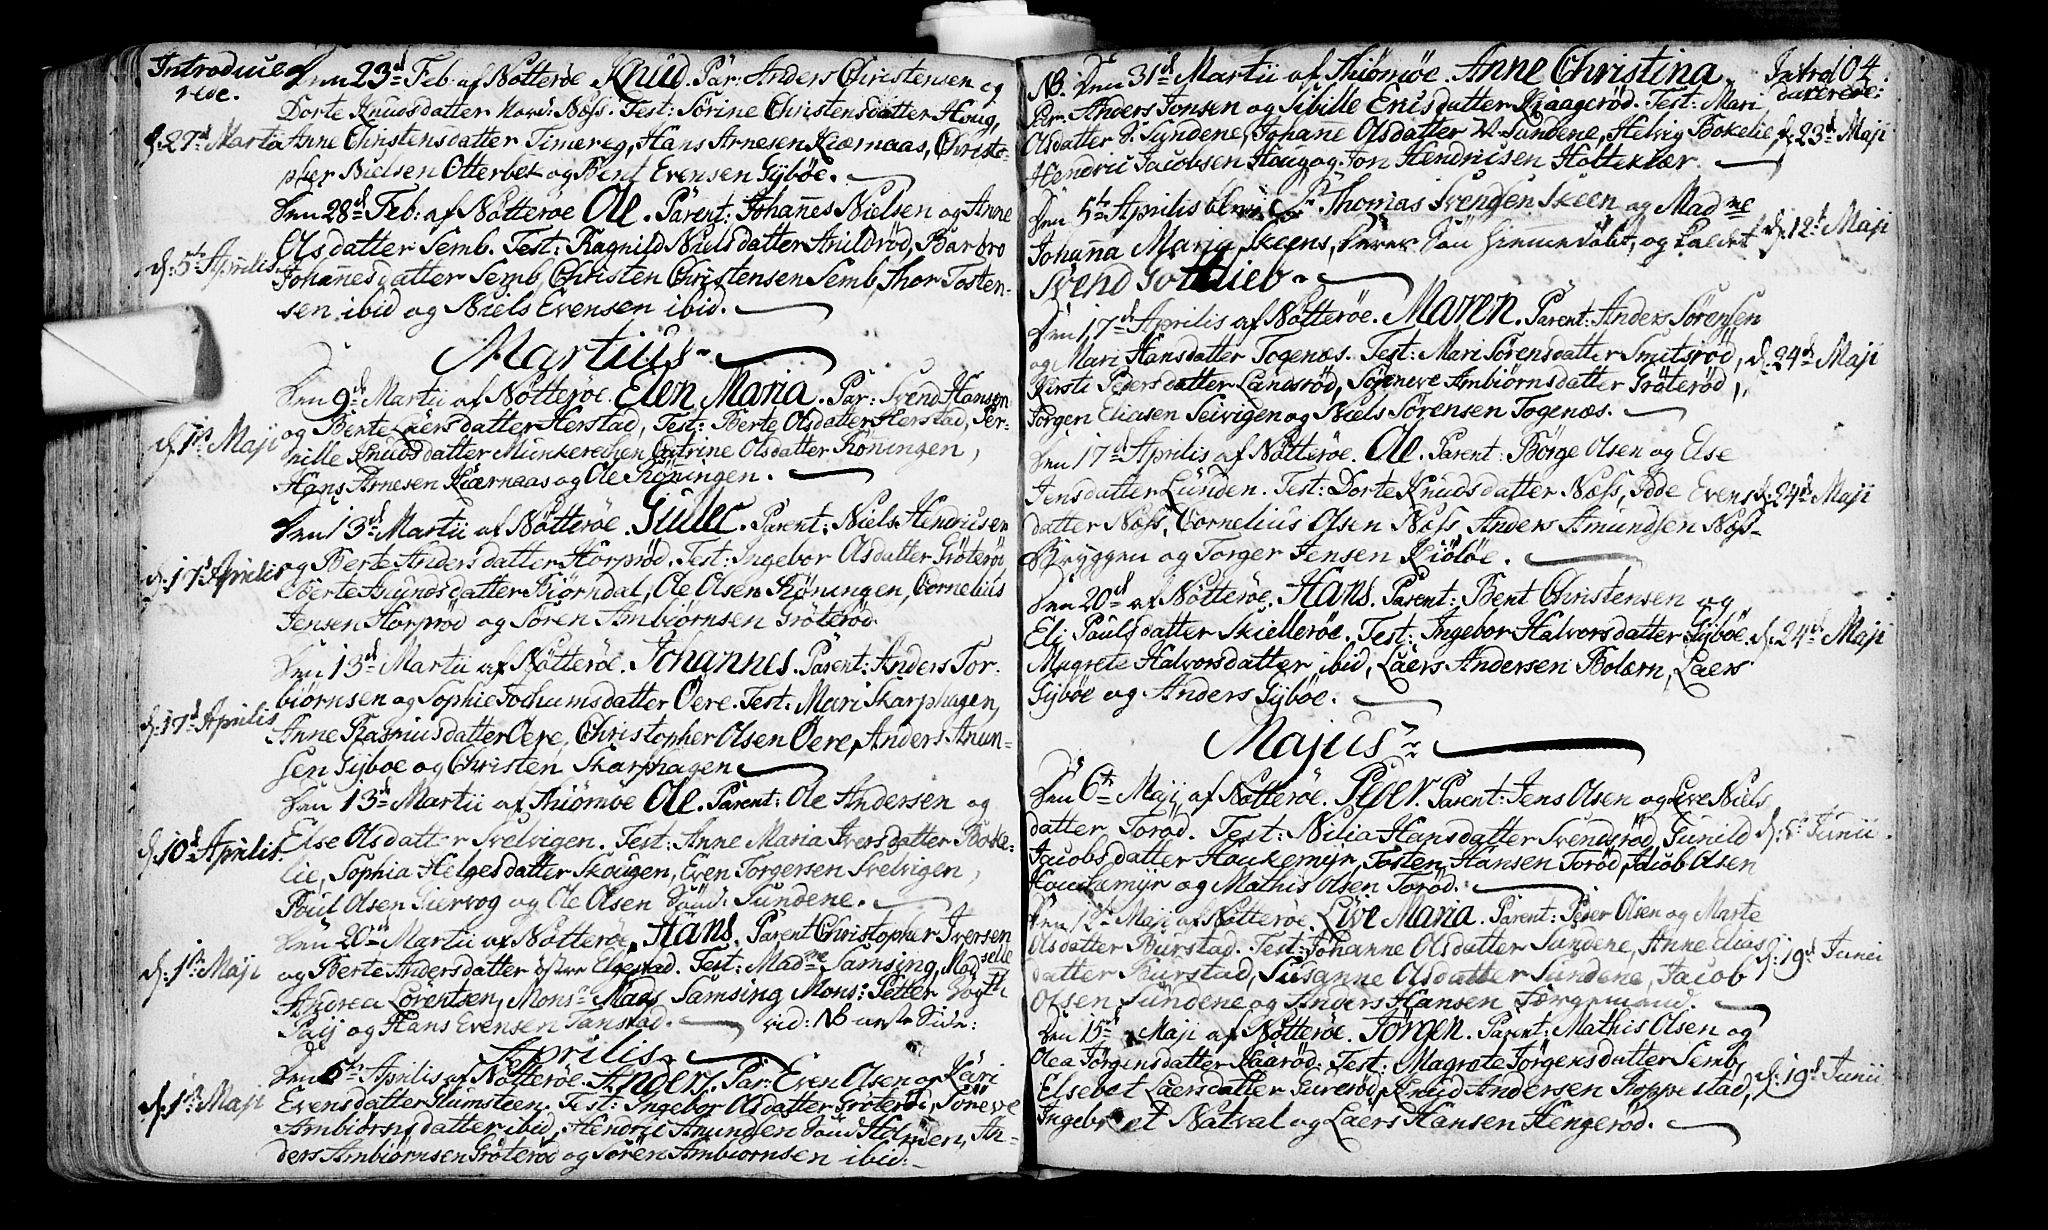 Introduce
rede.
Den 23d Feb. af Nötteröe Knud. Par: Anders Christensen og
Dorte Knudsdatter Nöss. Test: Sörine Christensdatter Houg,
d. 27d Martii Anne Christensdatter Timereg, Hans Arnesen Kiærnaas, Christo-
pher Nielsen Otterbek og Bent Evensen Gÿböe.
Den 28d Feb: af Nötteröe Ole. Parent: Johannes Nielsen og Anne
Olsdatter Semb. Test: Ragnild Nielsdatter Anildröd, Barbro
d. 5t Aprilis Johannesdatter Semb, Christen Christensen Semb, Thor Tosten-
sen ibid og Niels Evensen ibid.
Martius
Den 9d Martii af Nötteröe. Elen Maria. Par: Svend Hansen
d. 1st Maji og Berte Laersdatter Herstad, Test: Berte Olsdatter Herstad, Per-
nille Knudsdatter Munkerechen Catrine Olsdatter Röningen,
Hans Arnesen Kiærnaas og Ole Röningen.
Den 13d Martii af Nötteröe. Gullec. Parent: Niels Hendricsen
d. 17d Aprilis og Berte Andersdatter Horpröd. Test: Ingebor Olsdatter Gröteröd
Berte Anundsdatter Biörndal, Ole Olsen Röningen, Cornelius
Jensen Horpröd og Sören Ambiörnsen Gröteröd.
Den 13d Martii af Nötteröe. Johannes. Parent: Anders Tor-
biörnsen og Sophie Jochumsdatter Oere. Test: Mari Skarphagen,
d. 17d Aprilis Anne Rasmusdatter Oere, Christopher Olsen Oere, Anders Anun-
sen Gÿboe og Christen Skarphagen
Den 13d Martii af Thiömöe Ole. Parent: Ole Andersen og
d. 10d Aprilis. Else Olsdatter Svelvigen. Test: Anne Maria Iversdatter Boke-
lie, Sophia Helgesdatter Skougen, Even Torgersen Svelvigen,
Poul Olsen Giervog og Ole Olsen Sundene.
Den 20d Martii af Nötteröe, Hans. Parent Christopher Iversen
d. 1st Maji og Berte Andersdatter östre Elgestad. Test: Madme Samsing, Madselle
Andrea Lorentsen, Monsr Mads Samsing Mons: Petter Vogtt
Paij og Hans Evensen Tanstad. vid: NB neste Side:
Aprilis
Den 5te Aprilis af Nötteröe. Anders. Par: Even Olsen og Kari
d. 1st Maji Evensdatter Rumsteen. Test: Ingebor Olsdatter Gröteröd, Söneve
Ambiörnsdatter ibid, Hendric Anundsen Holmen, An-
ders Ambiörnsen Gröteröd og Sören Ambiörnsen ibid:
104
Introducerede:
NB. Den 31d Martii af Thiömöe. Anne Christina.
Par. Anders Jonsen og Sibille Ericsdatter Kraageröd. Test: Mari
Olsdatter S: Sundene, Johane Olsdatter V. Sundene, Helvig Bokelie d. 23d Maji
Hendric Jacobsen Houg og Jon Hendricsen Holtekiær.
Den 5te Aprilis Thomas Svendsen Skeen og Madme
Johanna Maria Skeens, deres Sön hiemmedöbt, og kaldet d. 12t Maji
Svend Gottlieb
Den 17d Aprilis af Nötteröe. Maren. Parent: Anders Sörensen
og Mari Hansdatter Togenæs. Test: Mari Sörensdatter Smitsröd, d. 24d Maji
Kirsti Pedersdatter Landsröd, Sögneve Ambiörnsdatter Gröteröd,
Jörgen Eliasen Seivigen og Niels Sörensen Togenæs.
Den 17d Aprilis af Nötteröe. Ole. Parent: Börge Olsen og Else
Jensdatter Lunden. Test: Dorte Knudsdatter Næss, Jdde Evens d. 24d Maji
datter Nöss, Cornelius Olsen Nöss, Anders Amundsen Nöss-
Bryggen og Torger Jensen Kiöböe.
Den 20d af Nötteröe. Hans. Parent: Bent Christensen og
Eli Poulsdatter Skielleröe. Test: Ingebor Halvorsdatter Gÿböe d. 24d Maji
Magrete Halvorsdatter ibid, Laers Andersen Bolærn, Laers
Gÿböe og Anders Gÿböe.
Majus
Den 6te Maji af Nötteröe. Peder. Parent: Jens Olsen og Live Niels
datter Toröd. Test: Nilia Hansdatter Svendsröd, Gunild d. 5t Junii.
Jacobsdatter Houkemÿr, Tosten Hansen Toröd, Jacob Olsen
Houkemÿr og Mathis Olsen Toröd.
Den 12t Maji af Nötteröe. Live Maria. Parent: Peder Olsen og Marte
Olsdatter Burstad. Test: Johanne Olsdatter Sundene, Anne Elias d. 19d Junii
datter Burstad, Susanne Olsdatter Sundene, Jacob
Olsen Sundene og Anders Hansen Færgemand.
Den 15d Maji af Nötteröe. Jörgen. Parent: Mathis Olsen og
Olea Jörgensdatter Kaaröd. Test: Magrete Jörgensdatter Semb,
Elsebet Laersdatter Gureröd, Knud Andersen Roppestad, d. 19d Junii
Ingebret Natval og Laers Hansen Hengeröd.